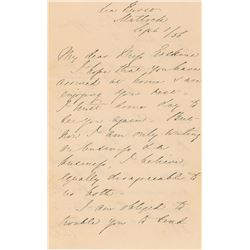 Lea Hurst
Matlock
Sept 1/58
My dear Miss Erskine
I hope that you have
arrived at home & are
enjoying your rest
I trust some day to
see you again. But
now I am only writing
on business & a
business, I believe
equally disagreeable to
us both.
I am obliged to
trouble you to send